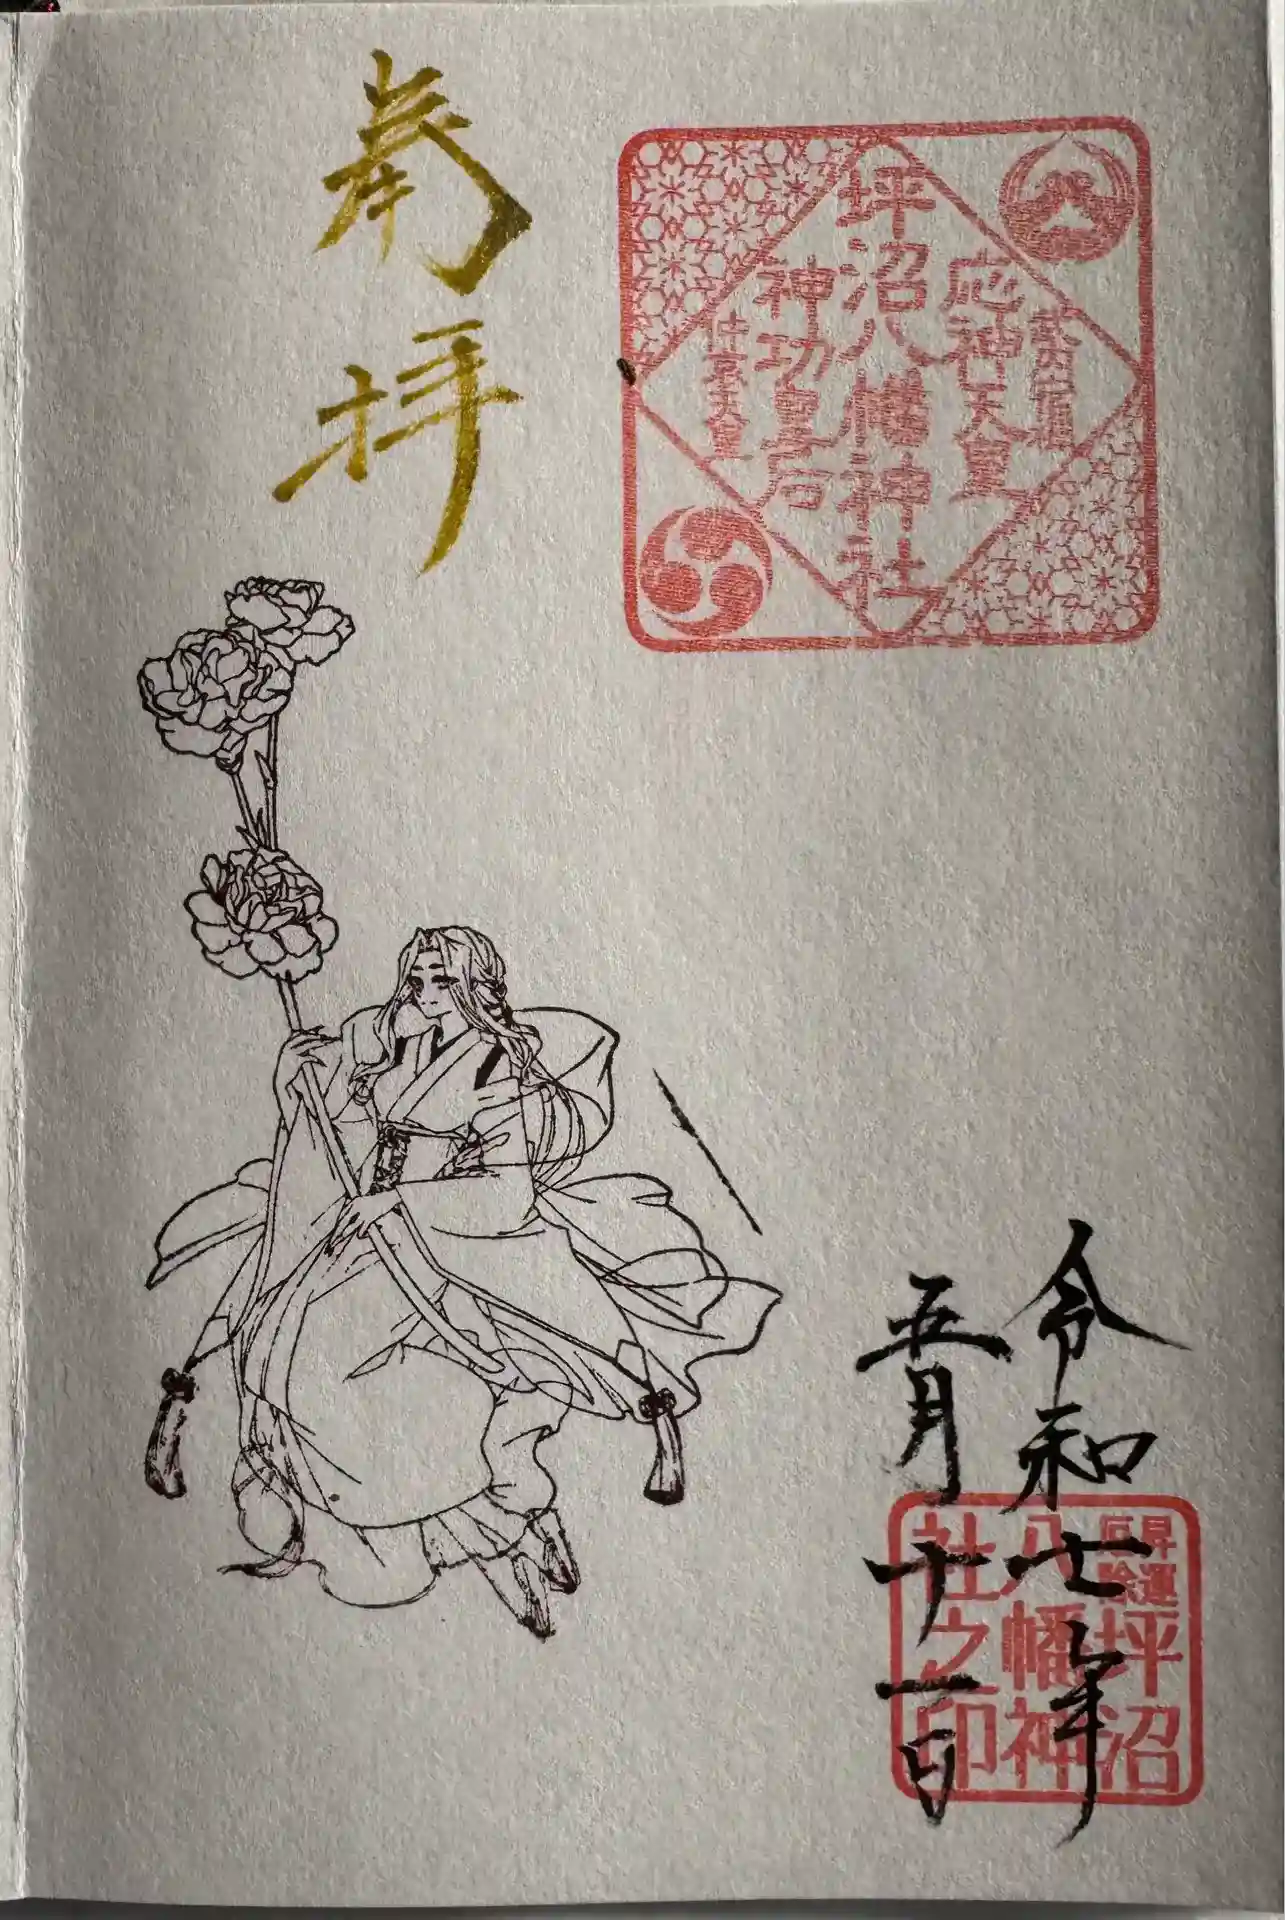 奉拝
応神天皇
坪沼八幡神社
神功皇后
仲哀天皇
令和七年
五月十一日
昇運
厄除
坪沼
八幡神
社之印